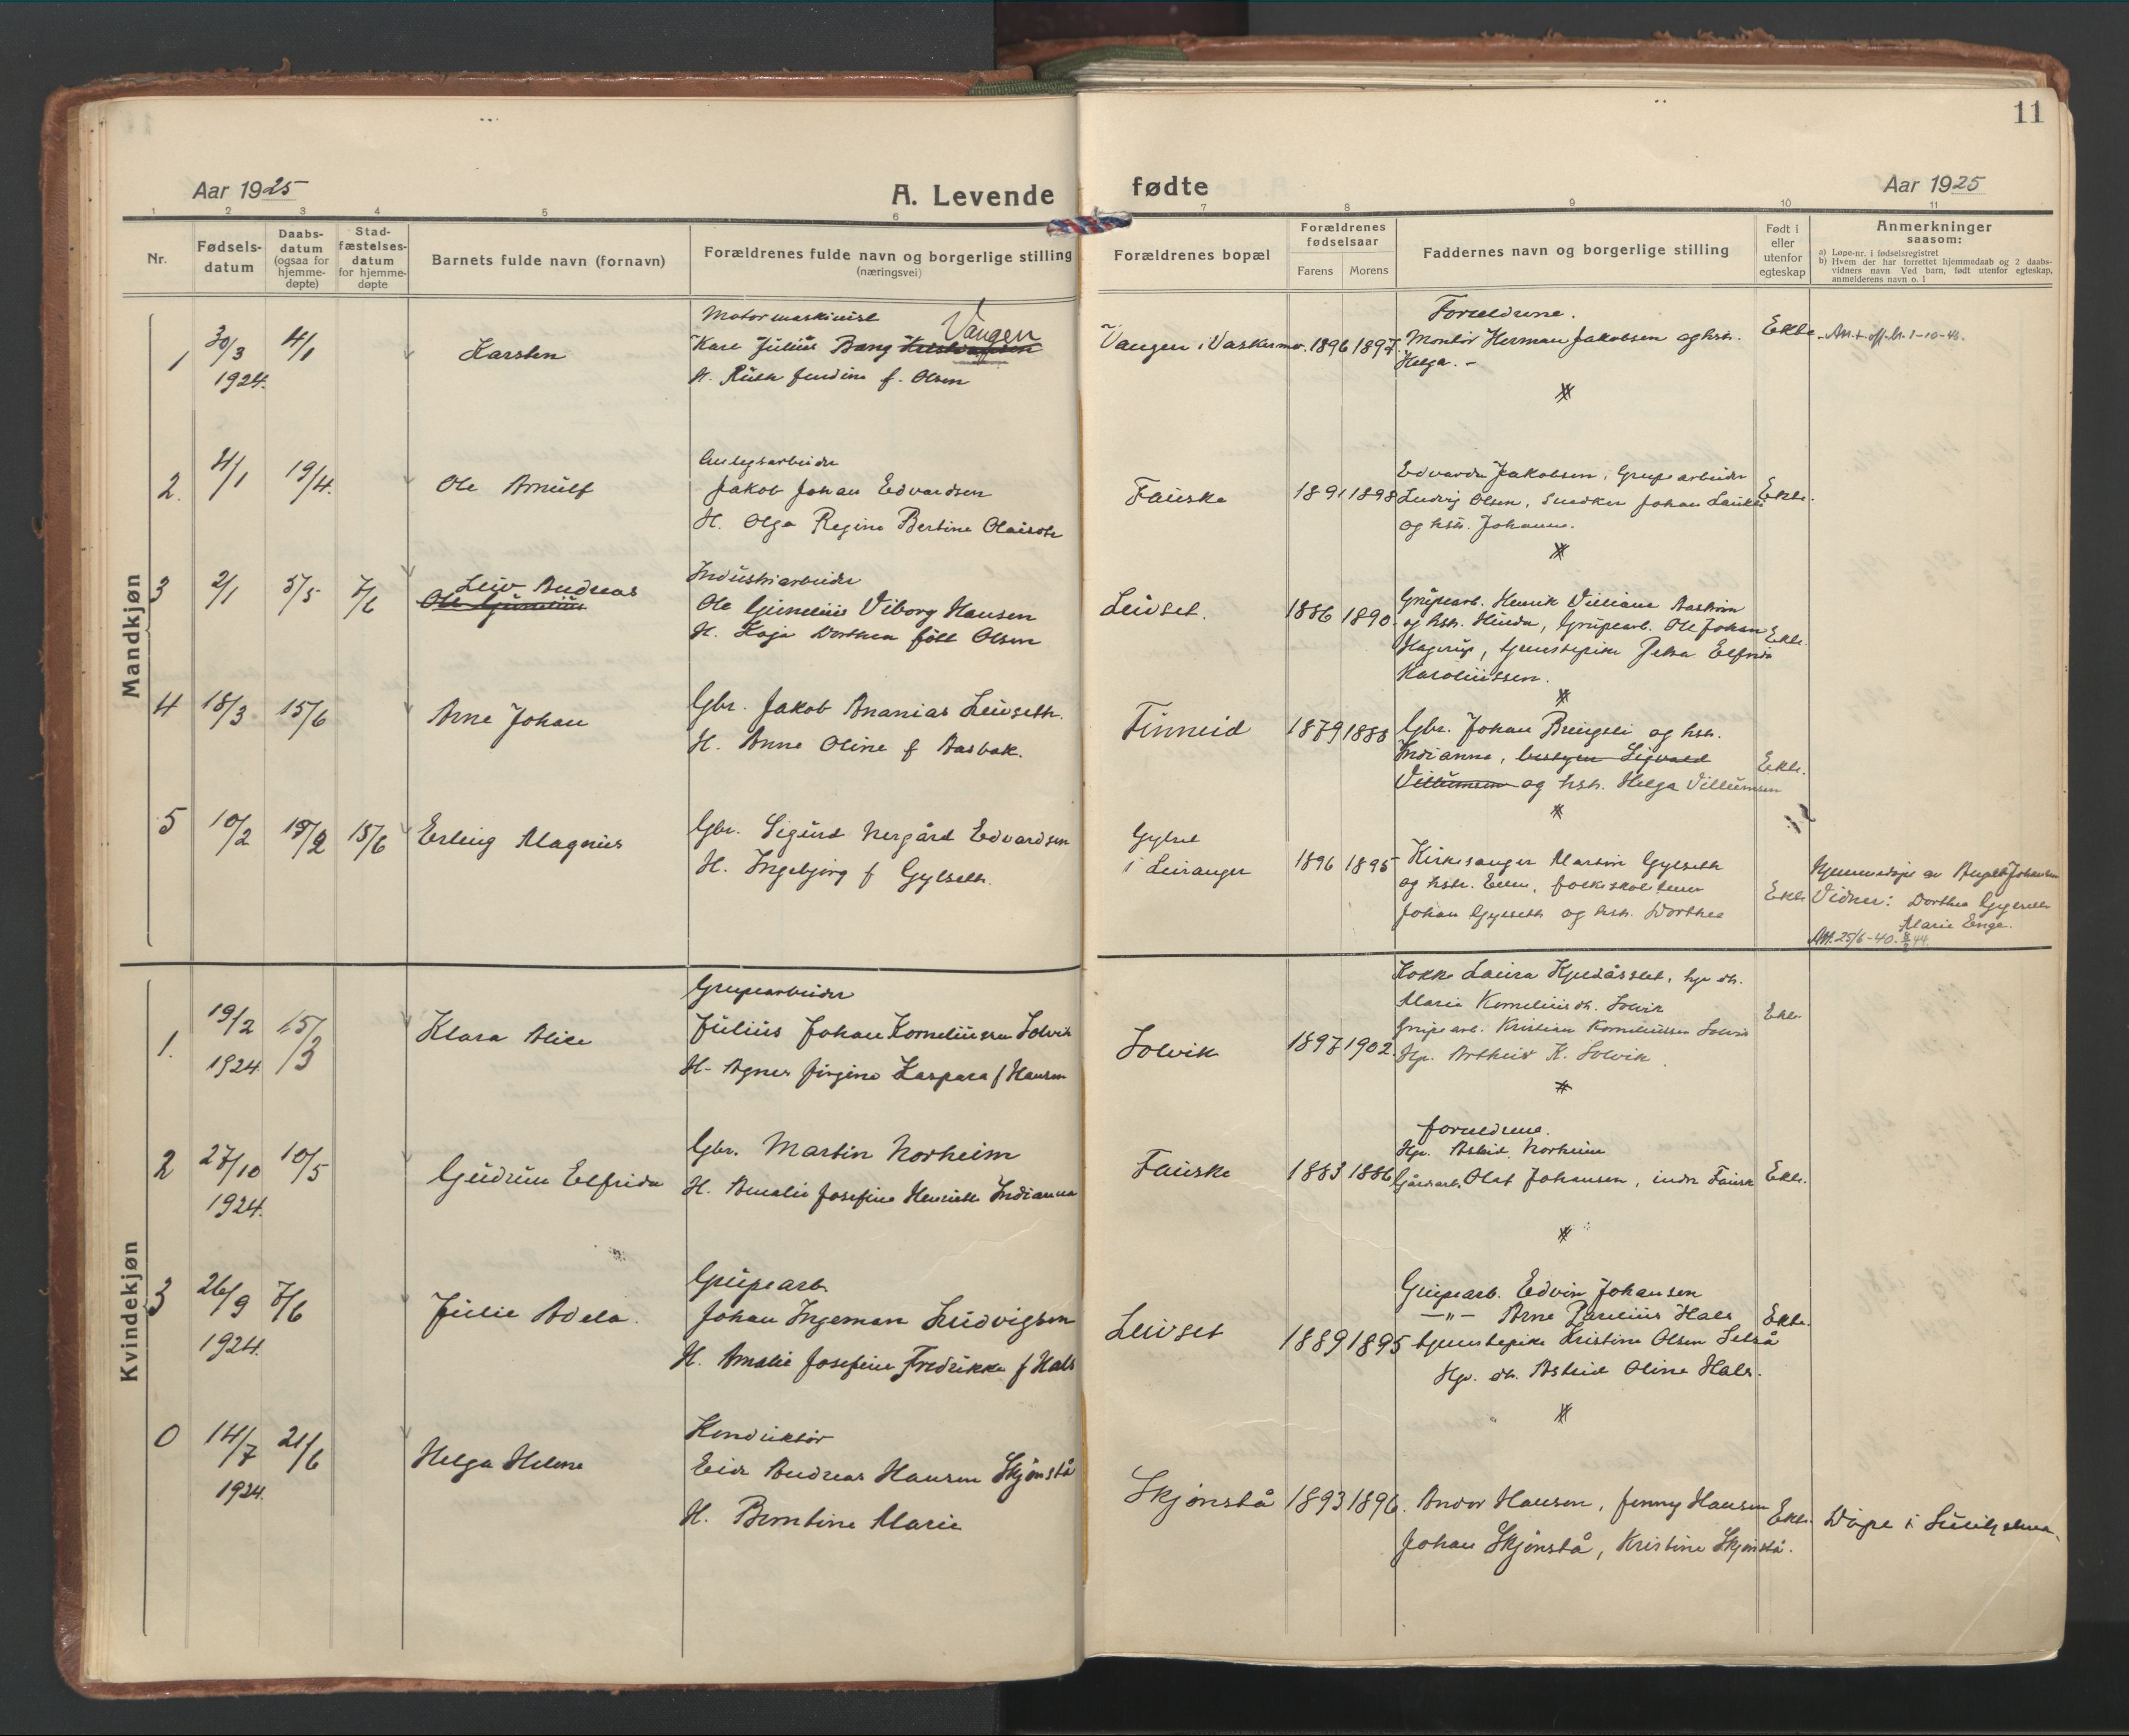 11
Aar 1925
A. Levende
fødte
Aar 1925
1 2 3 4 5 6 7 8 9 10 11
Nr.
Fødsels-
datum
Daabs-
datum
(ogsaa for
hjemme-
døpte)
Stad-
fæstelses-
datum
for hjemme-
døpte
Barnets fulde navn (fornavn)
Forældrenes fulde navn og borgerlige stilling
(næringsvei)
Forældrenes bopæl
Forældrenes
fødselsaar
Farens Morens
Faddernes navn og borgerlige stilling
Født i
eller
utenfor
egteskap
Anmerkninger
saasom:
a) Løpe-nr. i fødselsregistret
b) Hvem der har forrettet hjemmedaab og 2 daabs-
vidners navn Ved barn, født utenfor egteskap,
anmelderens navn o. l
Mandkjøn
1 30/3 4/1
1924.
Karsten
Motormaskinist
Karl Julius Bang Kristiansen Vangen
H. Ruth Jendine f. Olsen
Vangen i Vaskermo. 1896 1897.
Forældrene.
Montör Herman Jakobsen og hstr.
Helga. -
Ekte
Att. + off. br. 1-10-45.
2. 4/1 19/4.
Ole Arnulf
Anlegsarbeider
Jakob Johan Edvardsen
H. Olga Regine Bertine Olaisdtr
Fauske 1891 1898
Edvarda Jakobsen, Grupearbeider
Ludvig Olsen, Snedker Johan
og hstr. Johanne.
Ekte.
3 2/1 3/5 7/6
Leiv Andreas
Ole Gunelius
Industriarbeider
Ole Gunelius Viborg Hansen
H. Kaja Dorthea född Olsen
Leivset. 1886 1890.
Grupearb. Henrik Villiam Aaström
og hstr. Hinda, Grupearb. Ole Johan
Hagerup, tjenestepike Petra Elfrida
Karoliussen.
Ekte.
4 18/3 15/6
Arne Johan
Gbr. Jakob Ananias Leivseth.
H. Anne Oline f Aasbak.
Finneid 1879 1888
Gbr. Johan Bringsli og hstr.
Indianna, bestyrer Sigvald
Villumsen og hstr. Helga Villumsen
Ekte.
5 10/2 19/2 15/6
Erling Magnus
Gbr. Sigurd Nergård Edvardsen
H. Ingebjörg f Gylseth.
Gylset
i Leiranger 1896 1895
Kirkesanger Martin Gylseth
og hstr. Elen, folkeskolelærer
Johan Gylseth og hstr. Dorthea
Ekte
Hjemmedöpt av Johansen
Vidner: Dorthea Gylseth
Marie Enge.
Att. 25/6-40. 44
Kvindekjøn
1. 19/2 15/3
1924
Klara Alice
Grupearbeider
Julius Johan Korneliussen Solvik
H. Agnes Jörgine Kaspara f Hansen
Solvik 1897 1902.
Kokke Laura Kjeldåsset, hjv. dtr.
Maria Korneliusdtr. Solvik
Grupearb. Kristian Korneliussen Solvik
Hjv. K. Solvik
Ekte
2 27/10 10/5
1924.
Gudrun Elfrida
Gbr. Martin Norheim
H. Amalie Josefine Henriette Indianna
Fauske 1883 1886
forældrene.
Hjv. Astrid Norheim
Gårdsarb. Olaf Johansen, indre Fauske
Ekte.
3 26/9 7/6
1924.
Julie Adela.
Grupearb.
Johan Ingeman Ludvigsen
H. Amalie Josefine Fredrikke f Hals
Leivset 1889 1895
Grupearb. Edvin Johansen
—„— Arne Parelius Hals
tjenestepike Kristine Olsen Setså
Hjv. dtr. Astrid Oline Hals.
Ekte.
0 14/7 21/6
1924.
Helga Helene
Konduktör
Eidr Andreas Hansen Skjönstå
H. Berntine Marie
Skjönstå 1893 1896.
Andor Hansen, Jenny Hansen
Johan Skjönstå, Kristine Skjönstå.
Ekte.
Döpt i Sulitjelma.